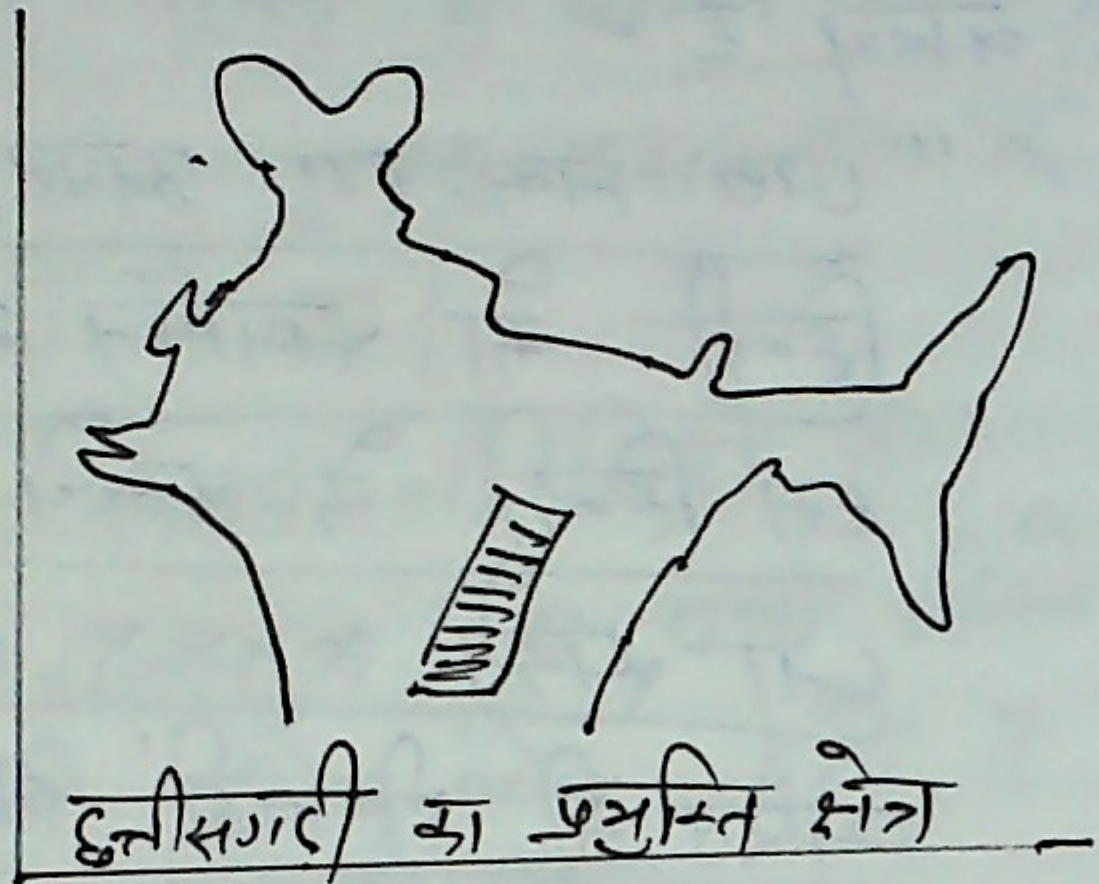 छत्तीसगढ़ी का प्रयुक्ति क्षेत्र